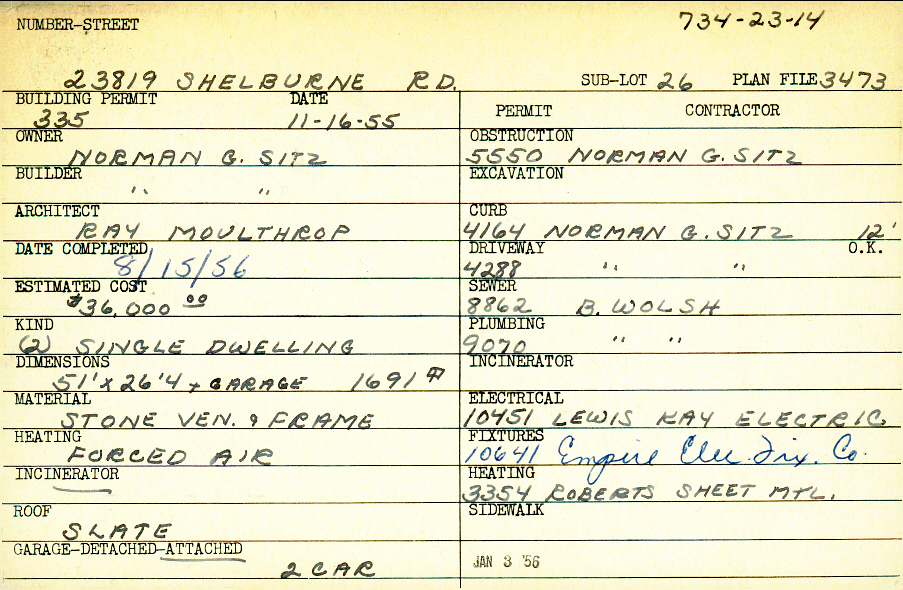 NUMBER-STREET
734-23-14
23819 SHELBURNE RD. SUB-LOT 26 PLAN FILE 3473
BUILDING PERMIT DATE
335 11-16-55
OWNER
NORMAN G. SITZ
BUILDER
" "
ARCHITECT
RAY MOULTHROP
DATE COMPLETED
8/15/56
ESTIMATED COST
$36,000 00
KIND
(2) SINGLE DWELLING
DIMENSIONS
51' X 26'4 + GARAGE 1691
MATERIAL
STONE VEN. & FRAME
HEATING
FORCED AIR
INCINERATOR
ROOF
SLATE
GARAGE-DETACHED-ATTACHED
2 CAR
PERMIT CONTRACTOR
OBSTRUCTION
5550 NORMAN G. SITZ
EXCAVATION
CURB
4164 NORMAN G. SITZ 12'
DRIVEWAY O.K.
4288 " "
SEWER
8862 B. WOLSH
PLUMBING
9070 " "
INCINERATOR
ELECTRICAL
10451 LEWIS KAY ELECTRIC
FIXTURES
10641 Empire Elec. Fix. Co.
HEATING
3354 ROBERTS SHEET MTL.
SIDEWALK
JAN 3 '56